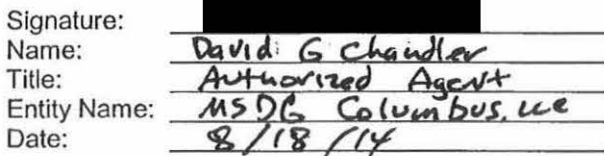 Signature:
Name: David G Chandler
Title: Authorized Agent
Entity Name: MSDG Columbus, LLC
Date: 8/18/14